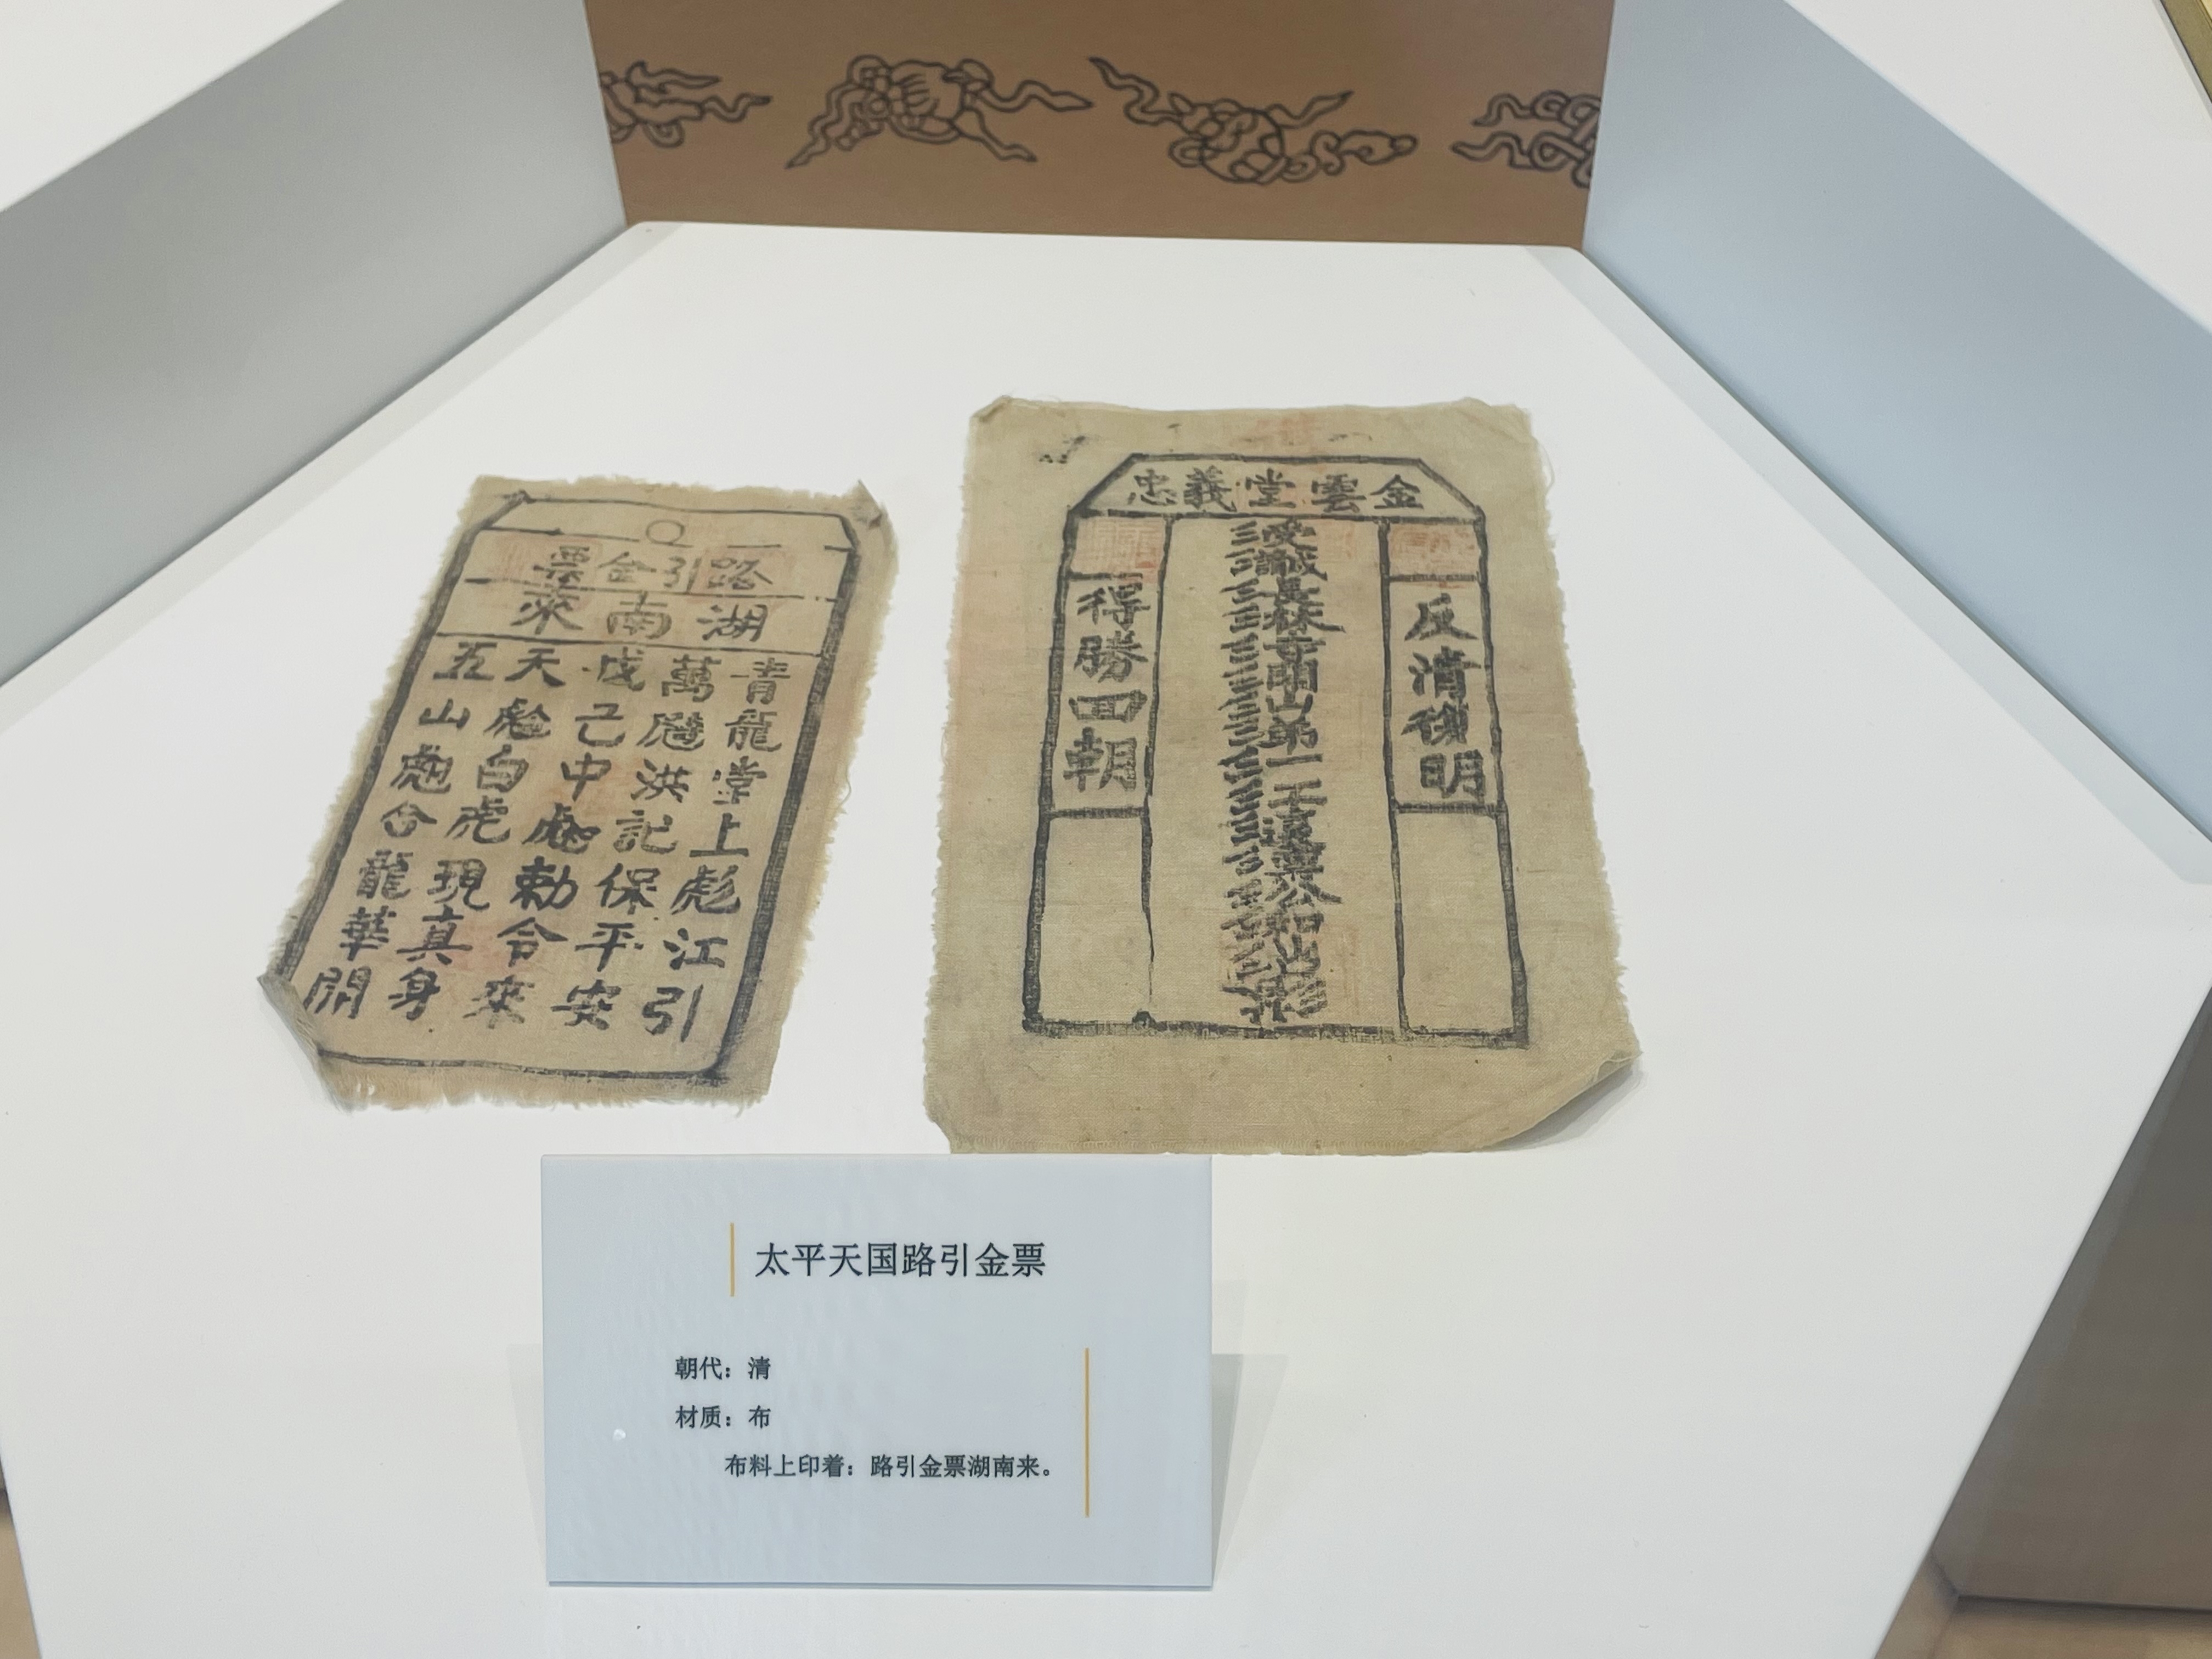 路引金票
湖南來
青龍堂上彪江引
萬飃洪記保平安
戊己中彪勅令來
天彪白虎現真身
五山彪合龍華開
金雲堂義忠
反清復明
得勝回朝
太平天国路引金票
朝代：清
材质：布
布料上印着：路引金票湖南来。